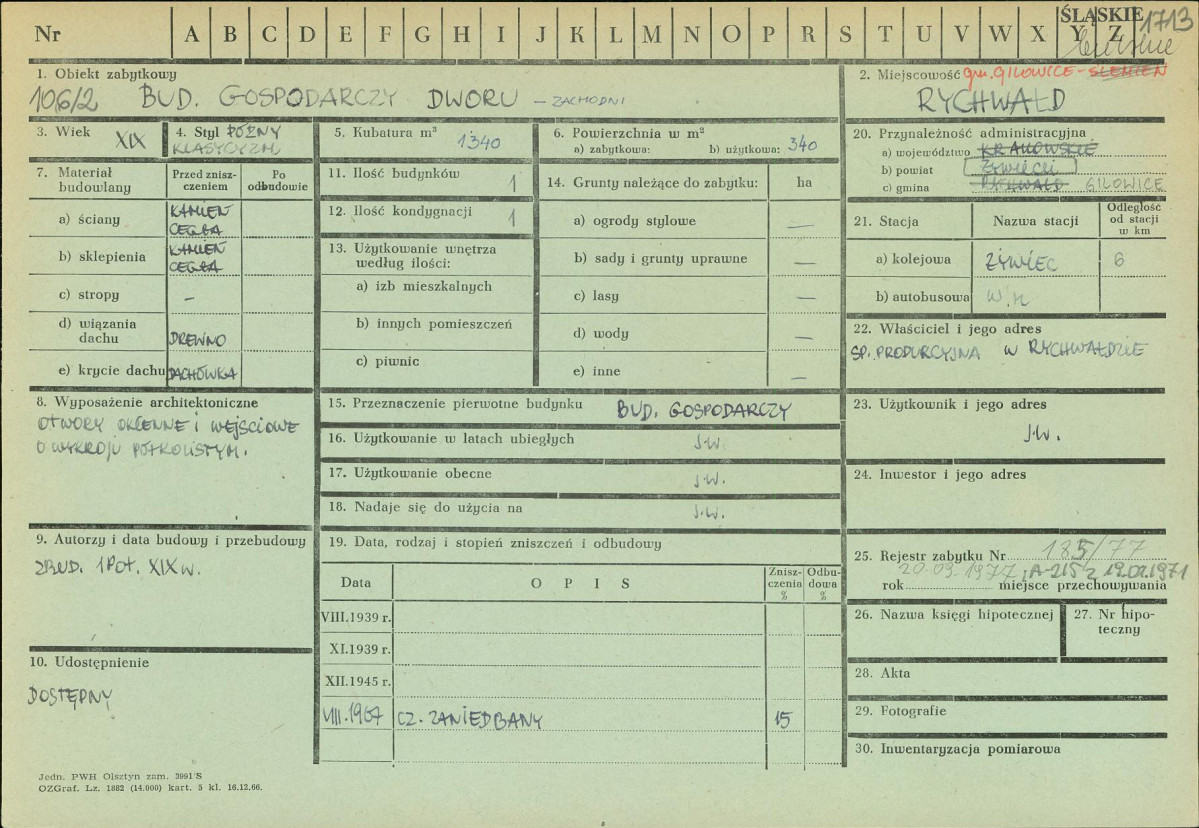 ŚLĄSKIE 1713
Nr A B C D E F G H I J K L M N O P R S T U V W X Y Z
1. Obiekt zabytkowy
106/2 BUD. GOSPODARCZY DWORU – ZACHODNI
2. Miejscowość gm. GILOWICE - ŚLEMIEŃ
RYCHWAŁD
3. Wiek XIX
4. Styl PÓŹNY
KLASYCYZM
5. Kubatura m³ 1340
6. Powierzchnia w m²
a) zabytkowa: b) użytkowa: 340
20. Przynależność administracyjna
a) województwo KRAKOWSKIE
b) powiat ŻYWIECKI
c) gmina RYCHWAŁD GILOWICE
7. Materiał budowlany
Przed zniszczeniem
Po odbudowie
a) ściany KAMIEŃ
CEGŁA
b) sklepienia KAMIEŃ
CEGŁA
c) stropy –
d) wiązania
dachu DREWNO
e) krycie dachu DACHÓWKA
11. Ilość budynków 1
12. Ilość kondygnacji 1
13. Użytkowanie wnętrza
według ilości:
a) izb mieszkalnych
b) innych pomieszczeń
c) piwnic
14. Grunty należące do zabytku: ha
a) ogrody stylowe —
b) sady i grunty uprawne —
c) lasy —
d) wody —
e) inne —
21. Stacja Nazwa stacji Odległość
od stacji
w km
a) kolejowa ŻYWIEC 6
b) autobusowa W.M
22. Właściciel i jego adres
SP. PRODUKCYJNA W RYCHWAŁDZIE
8. Wyposażenie architektoniczne
OTWORY OKIENNE I WEJŚCIOWE
O WYKROJU PÓŁKOLISTYM.
15. Przeznaczenie pierwotne budynku BUD. GOSPODARCZY
16. Użytkowanie w latach ubiegłych J.W.
17. Użytkowanie obecne J.W.
18. Nadaje się do użycia na J.W.
23. Użytkownik i jego adres
J.W.
24. Inwestor i jego adres
9. Autorzy i data budowy i przebudowy
ZBUD. 1 POŁ. XIX W.
19. Data, rodzaj i stopień zniszczeń i odbudowy
Data OPIS Zniszczenia % Odbudowa %
VIII.1939 r.
XI.1939 r.
XII.1945 r.
VIII.1967 CZ. ZANIEDBANY 15
25. Rejestr zabytku Nr 185/77
20.09.1977, A-215 z 19.02.1971
rok miejsce przechowywania
26. Nazwa księgi hipotecznej
27. Nr hipoteczny
10. Udostępnienie
DOSTĘPNY
28. Akta
29. Fotografie
30. Inwentaryzacja pomiarowa
Jedn. PWH Olsztyn zam. 3991/S
OZGraf. Lz. 1882 (14.000) kart. 5 kl. 16.12.66.